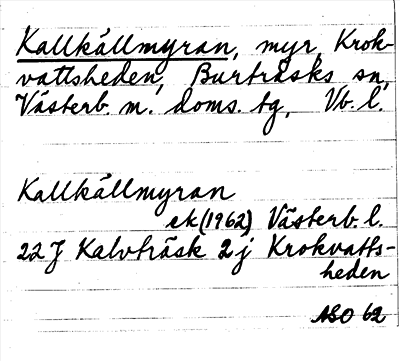 Kallkällmyran, myr, Krok-
vattsheden, Burträsks sn,
Västerb. n. doms. tg, Vb. l.
Kallkällmyran
ek (1962) Västerb. l.
22 J Kalvträsk 2 j Krokvatts-
heden
ASO 62